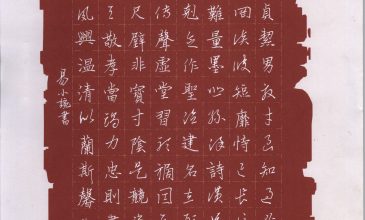 貞潔男效才良知過
罔談彼短靡恃己長
難量墨悲絲染詩讚
剋念作聖德建名立形
傳聲虛堂習聽禍因惡
尺璧非寶寸陰是競
与敬孝當竭力忠則盡
夙興溫清似蘭斯馨
易小書